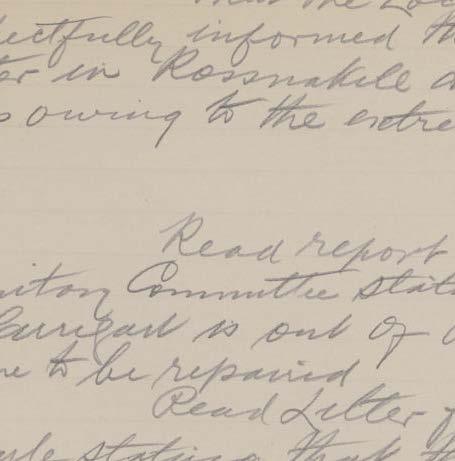 that the Loc
ectfully informed th
ter in Rossnakile
s owing to the extre
Read report
nitary Committee stat
Carrigart is out of
re to be repaired
Read Letter
stating that th